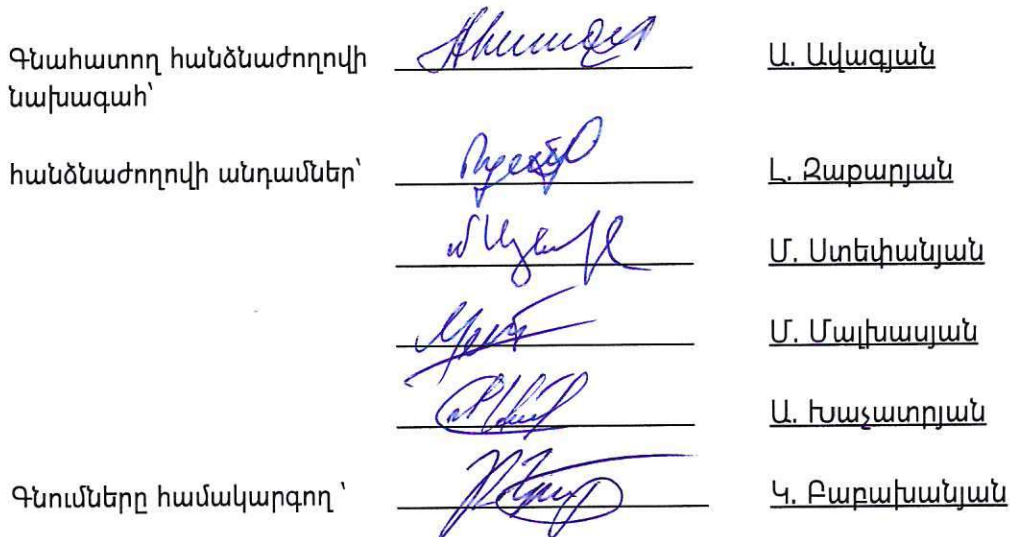 Գնահատող հանձնաժողովի Ա. Ավագյան
նախագահ՝
հանձնաժողովի անդամներ՝ Լ. Զաքարյան
Մ. Ստեփանյան
Մ. Մալխասյան
Ա. Խաչատրյան
Գնումները համակարգող ՝ Կ. Բաբախանյան